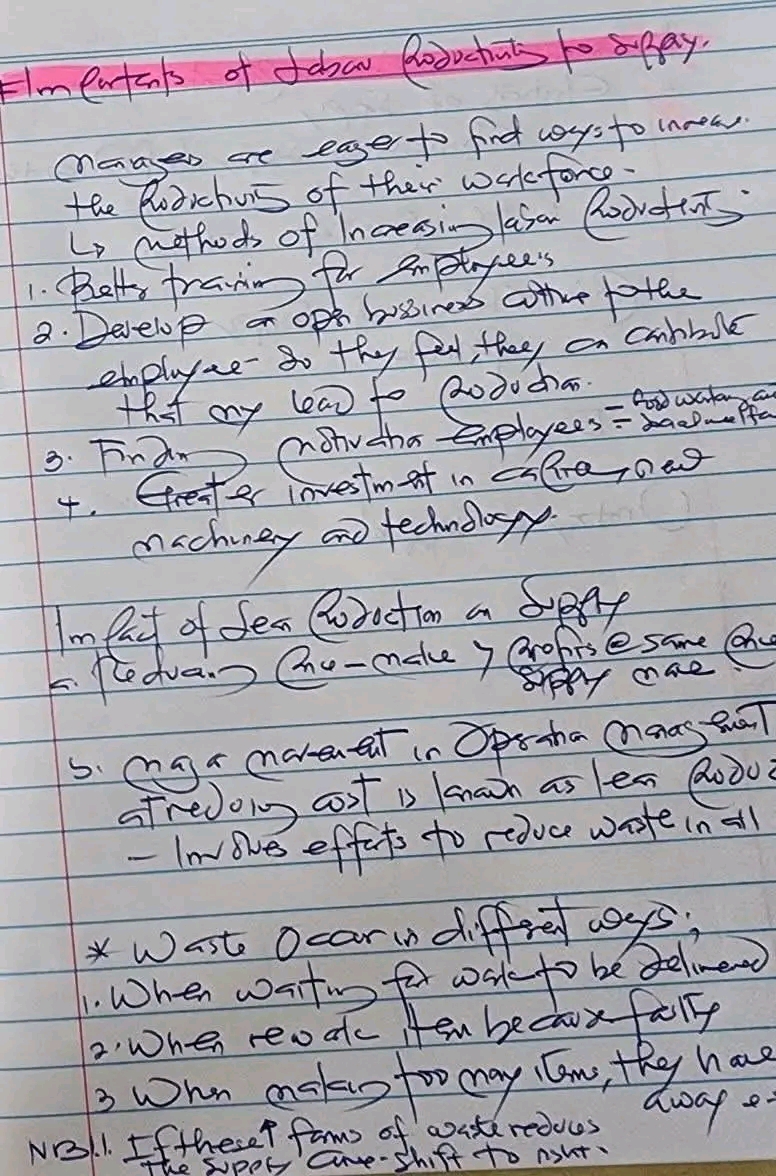 Impartents of Labour Productivity to Supply.
Managers are eager to find ways to increase
the Productivity of their workforce -
↳ methods of Increasing labour Productivity
1. Better training for employees
2. Develop an open bussiness culture to the
employee - So they feel, they can contribute
that may lead to Production.
3. Finding motivation employees =
4. Greater investment in new
machinery and technology.
Impact of Lean Production on Supply
a. Reducing Price - make > Profits @ same Price
Supply more
b. Major movement in Operation Management
at reducing cost is known as lean
- Involves efforts to reduce waste in all
* Waste Occur in different ways;
1. When waiting for work to be delivered
2. When rework item because faulty
3 When making too many items, they have
away
NB 1. If these ↑ forms of waste reduces
the supply curve - shift to right.